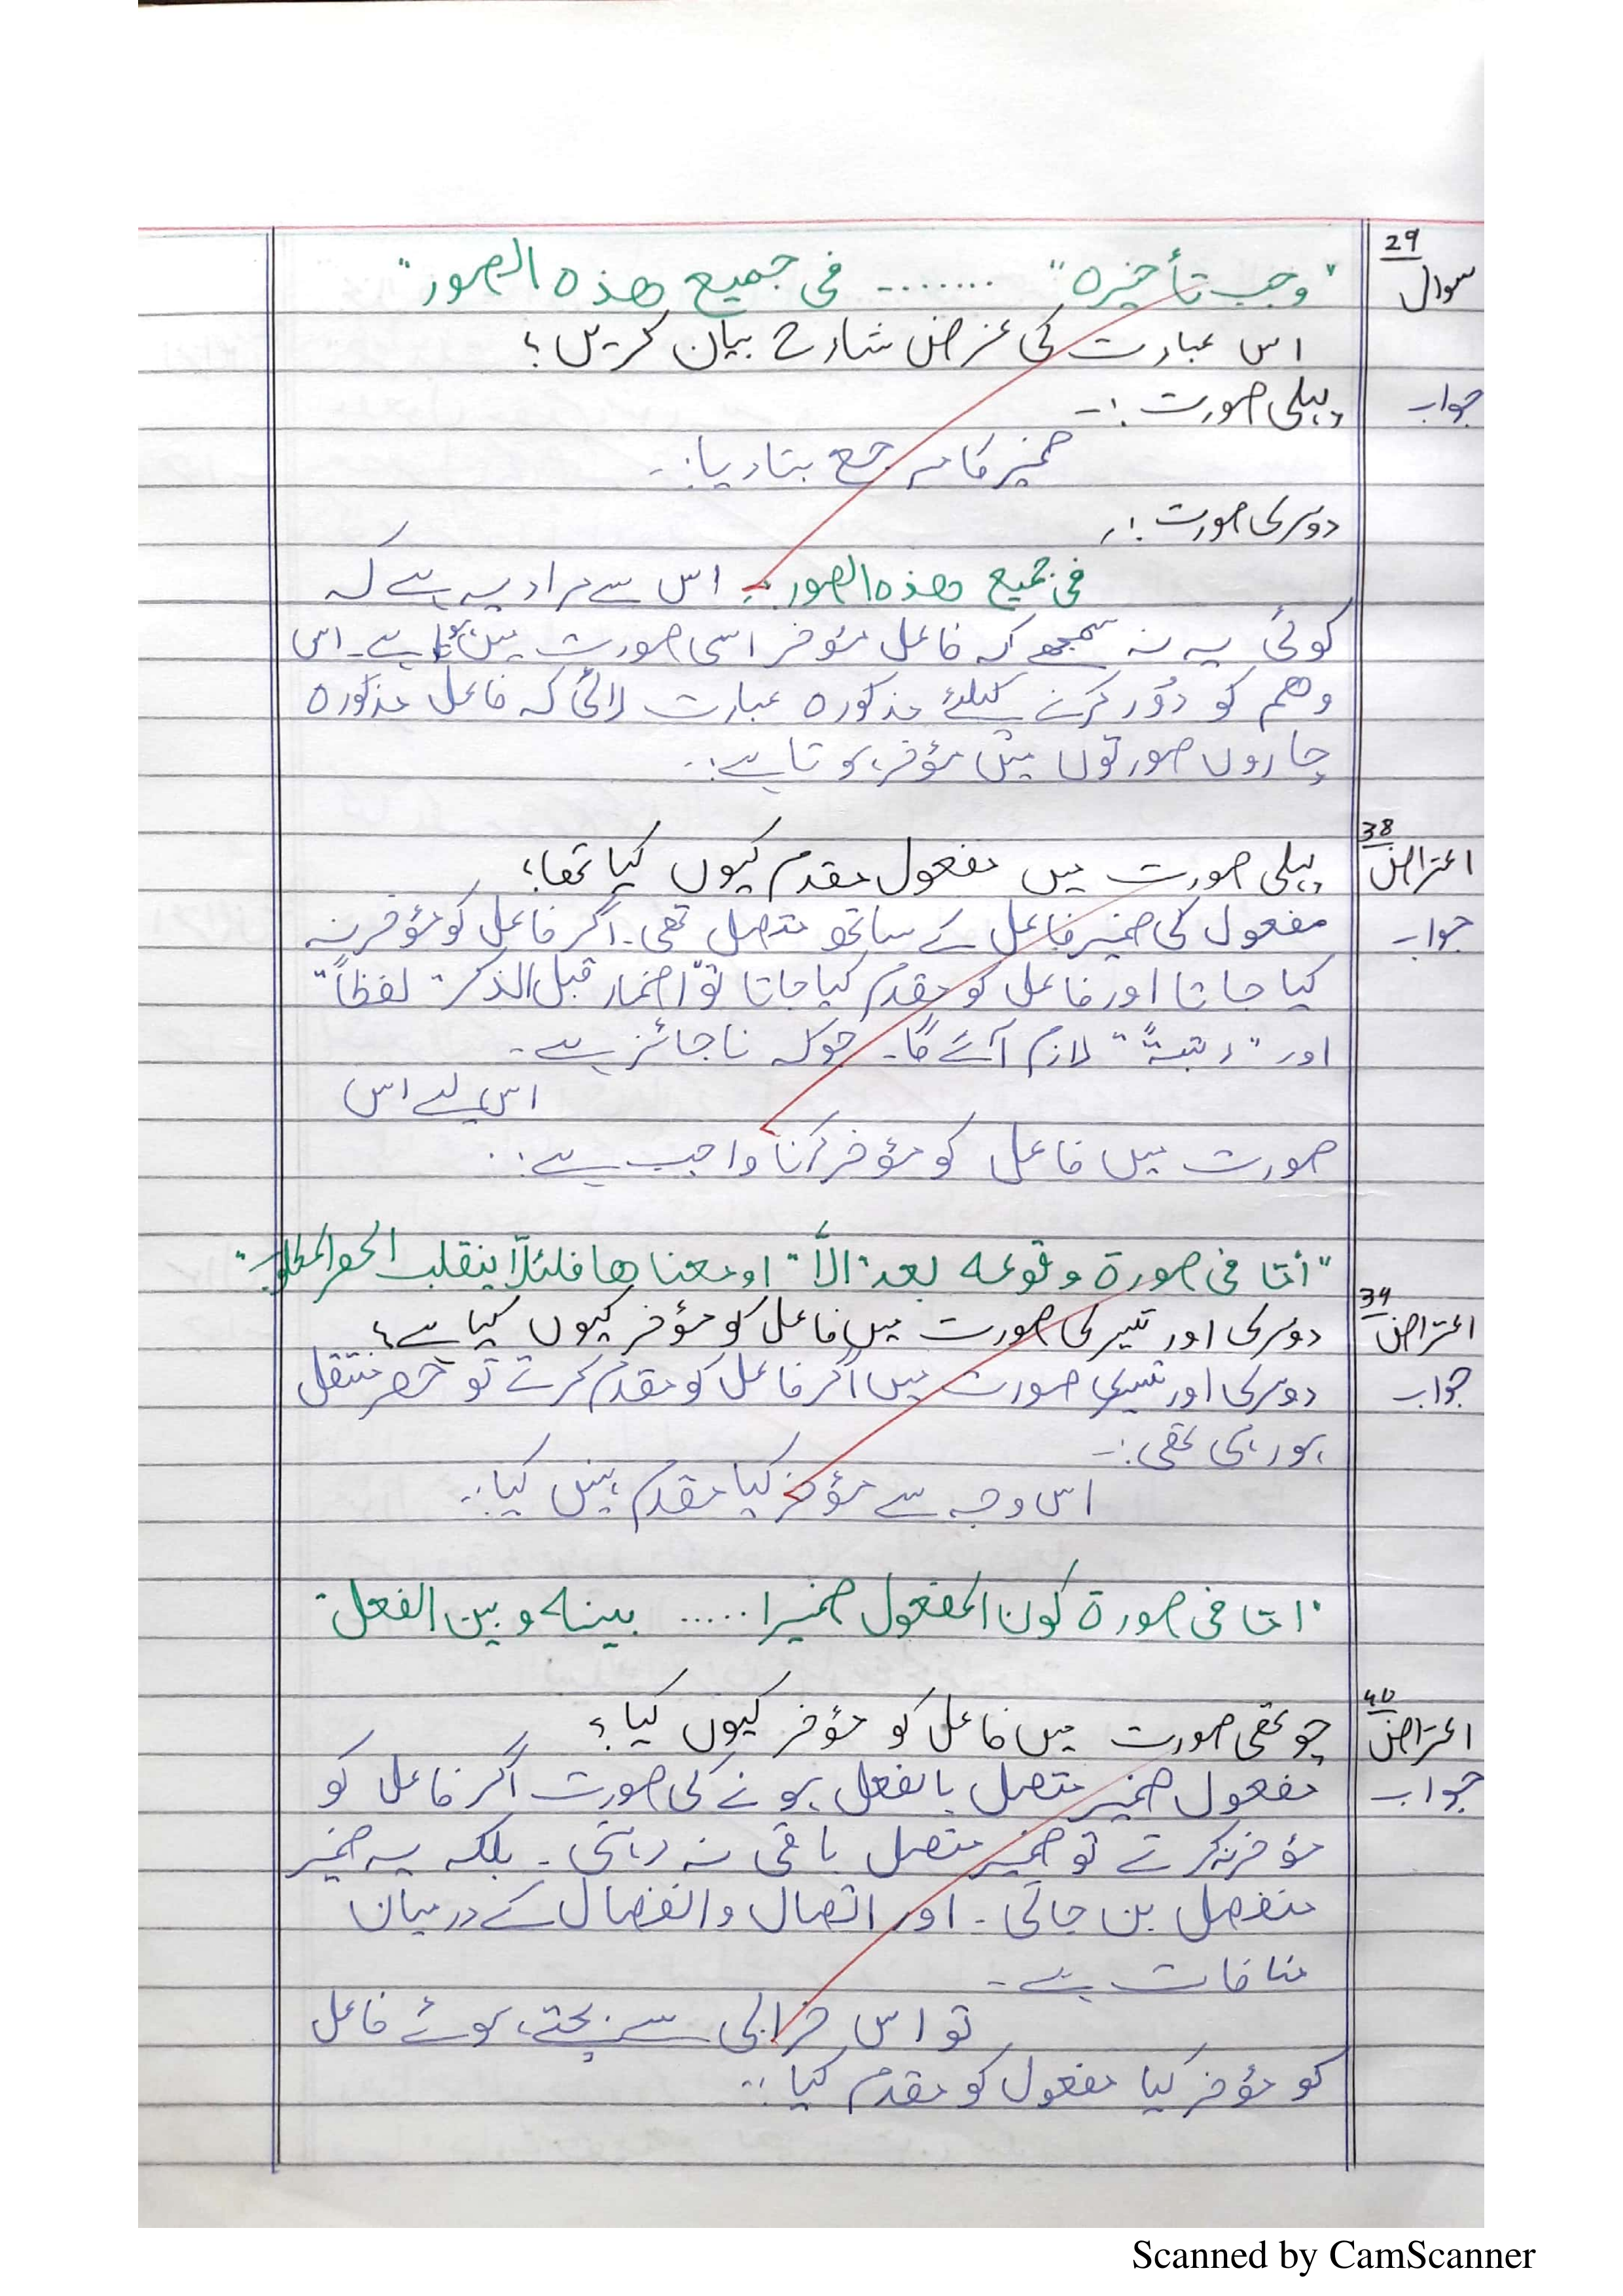 29
سوال
"وجب تأخیرہ" ........ فی جمیع ھذہ الصور"
اس عبارت کی غرض شارح بیان کریں؟
جواب
پہلی صورت :-
ضمیر کا مرجع بتا دیا:-
دوسری صورت :-
فی جمیع ھذہ الصور :- اس سے مراد یہ ہے کہ
کوئی یہ نہ سمجھے کہ فاعل مؤخر اسی صورت میں ہوتا ہے۔ اس
وھم کو دُور کرنے کیلئے مذکورہ عبارت لائی کہ فاعل مذکورہ
چاروں صورتوں میں مؤخر ہوتا ہے:-
38
اعتراض
پہلی صورت میں مفعول مقدم کیوں کیا تھا؟
جواب
مفعول کی ضمیر فاعل کے ساتھ متصل تھی۔ اگر فاعل کو مؤخر نہ
کیا جاتا اور فاعل کو مقدم کیا جاتا تو "اضمار قبل الذکر" لفظاً"
اور "رتبۃً" لازم آئے گا۔ جوکہ ناجائز ہے۔
اس لیے اس
صورت میں فاعل کو مؤخر کرنا واجب ہے:-
"أمّا فی صورۃ وقوعہ بعد "الاّ" او معناھا فلئلاّ ینقلب الحصر المطلوب"
39
اعتراض
دوسری اور تیسری صورت میں فاعل کو مؤخر کیوں کیا ہے؟
جواب
دوسری اور تیسری صورت میں اگر فاعل کو مقدم کرتے تو حصر منتقل
ہو رہی تھی:-
اس وجہ سے مؤخر کیا مقدم نہیں کیا:-
"امّا فی صورۃ کون المفعول ضمیرا ..... بینہ و بین الفعل"
40
اعتراض
چوتھی صورت میں فاعل کو مؤخر کیوں کیا؟
جواب
مفعول ضمیر متصل بالفعل ہونے کی صورت اگر فاعل کو
مؤخر نہ کرتے تو ضمیر متصل باقی نہ رہتی۔ بلکہ یہ ضمیر
منفصل بن جاتی۔ اور اتصال و انفصال کے درمیان
منافات ہے۔
تو اس خرابی سے بچتے ہوئے فاعل
کو مؤخر کیا مفعول کو مقدم کیا:-
Scanned by CamScanner